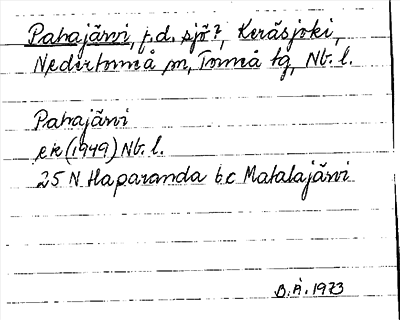 Pahajärvi, f.d. sjö?, Keräsjoki,
Nedertorneå sn, Torneå tg, Nb. l.
Pahajärvi
ek (1949) Nb. l.
25 N Haparanda 6c Matalajärvi
B.Å. 1973